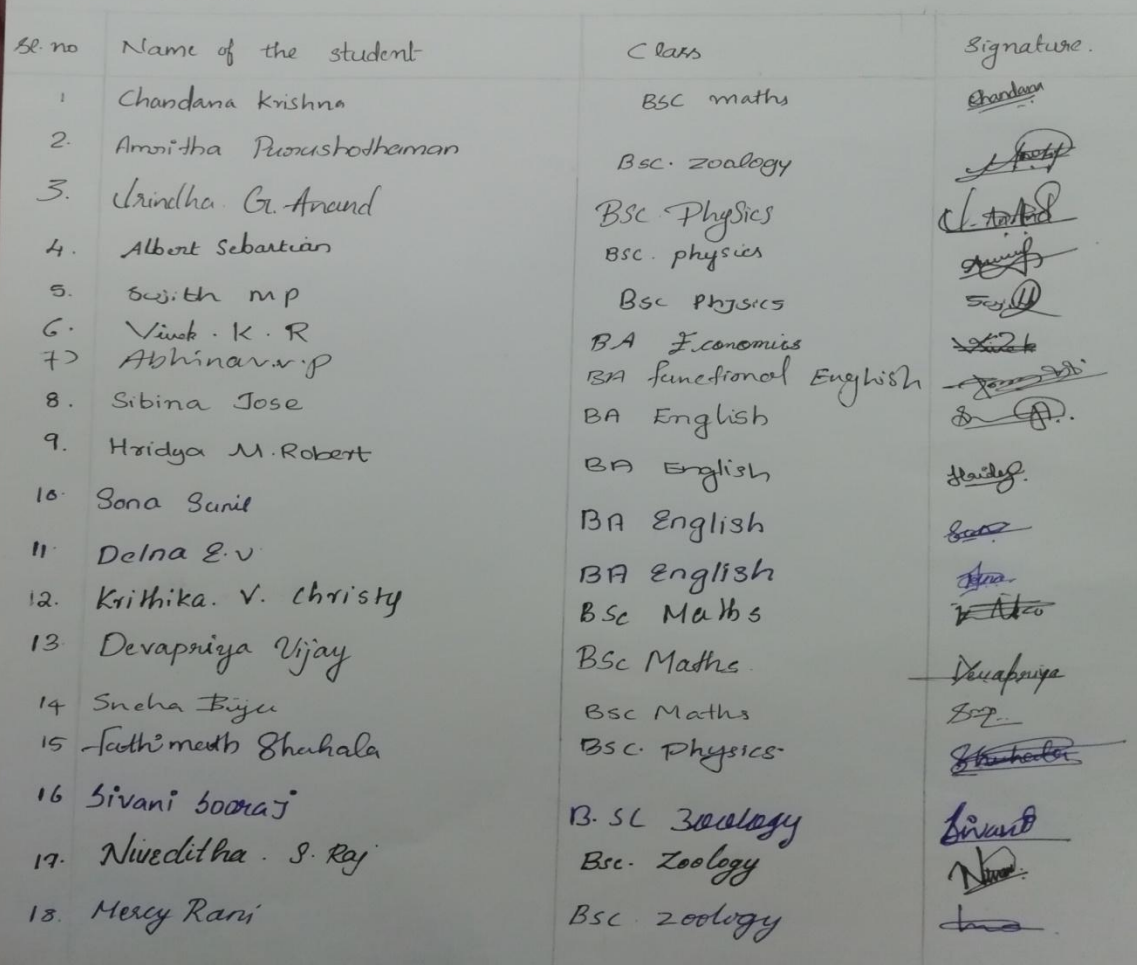 Sl. no Name of the student Class Signature.
1 Chandana Krishna BSC maths Chandana
2. Amritha Purushothaman Bsc. zoalogy
3. Vrindha G. Anand BSC Physics
4. Albert Sebastian BSC. physics
5. Sujith m p Bsc Physics
6. Vivek . K . R BA Economics Vivek
7) Abhinav.v.p BA functional English
8. Sibina Jose BA English
9. Hridya M. Robert BA English
10. Sona Sunil BA English
11. Delna E.V BA English
12. Krithika. V. Christy BSc Maths
13 Devapriya Vijay BSc Maths Devapriya
14 Sneha Biju BSC Maths
15 Fathimath Shahala BSC. Physics Shahala
16 Sivani Sooraj B. SC Zoology Sivani
17. Niveditha . S. Raj Bsc. Zoology
18. Mercy Rani BSC. zoology